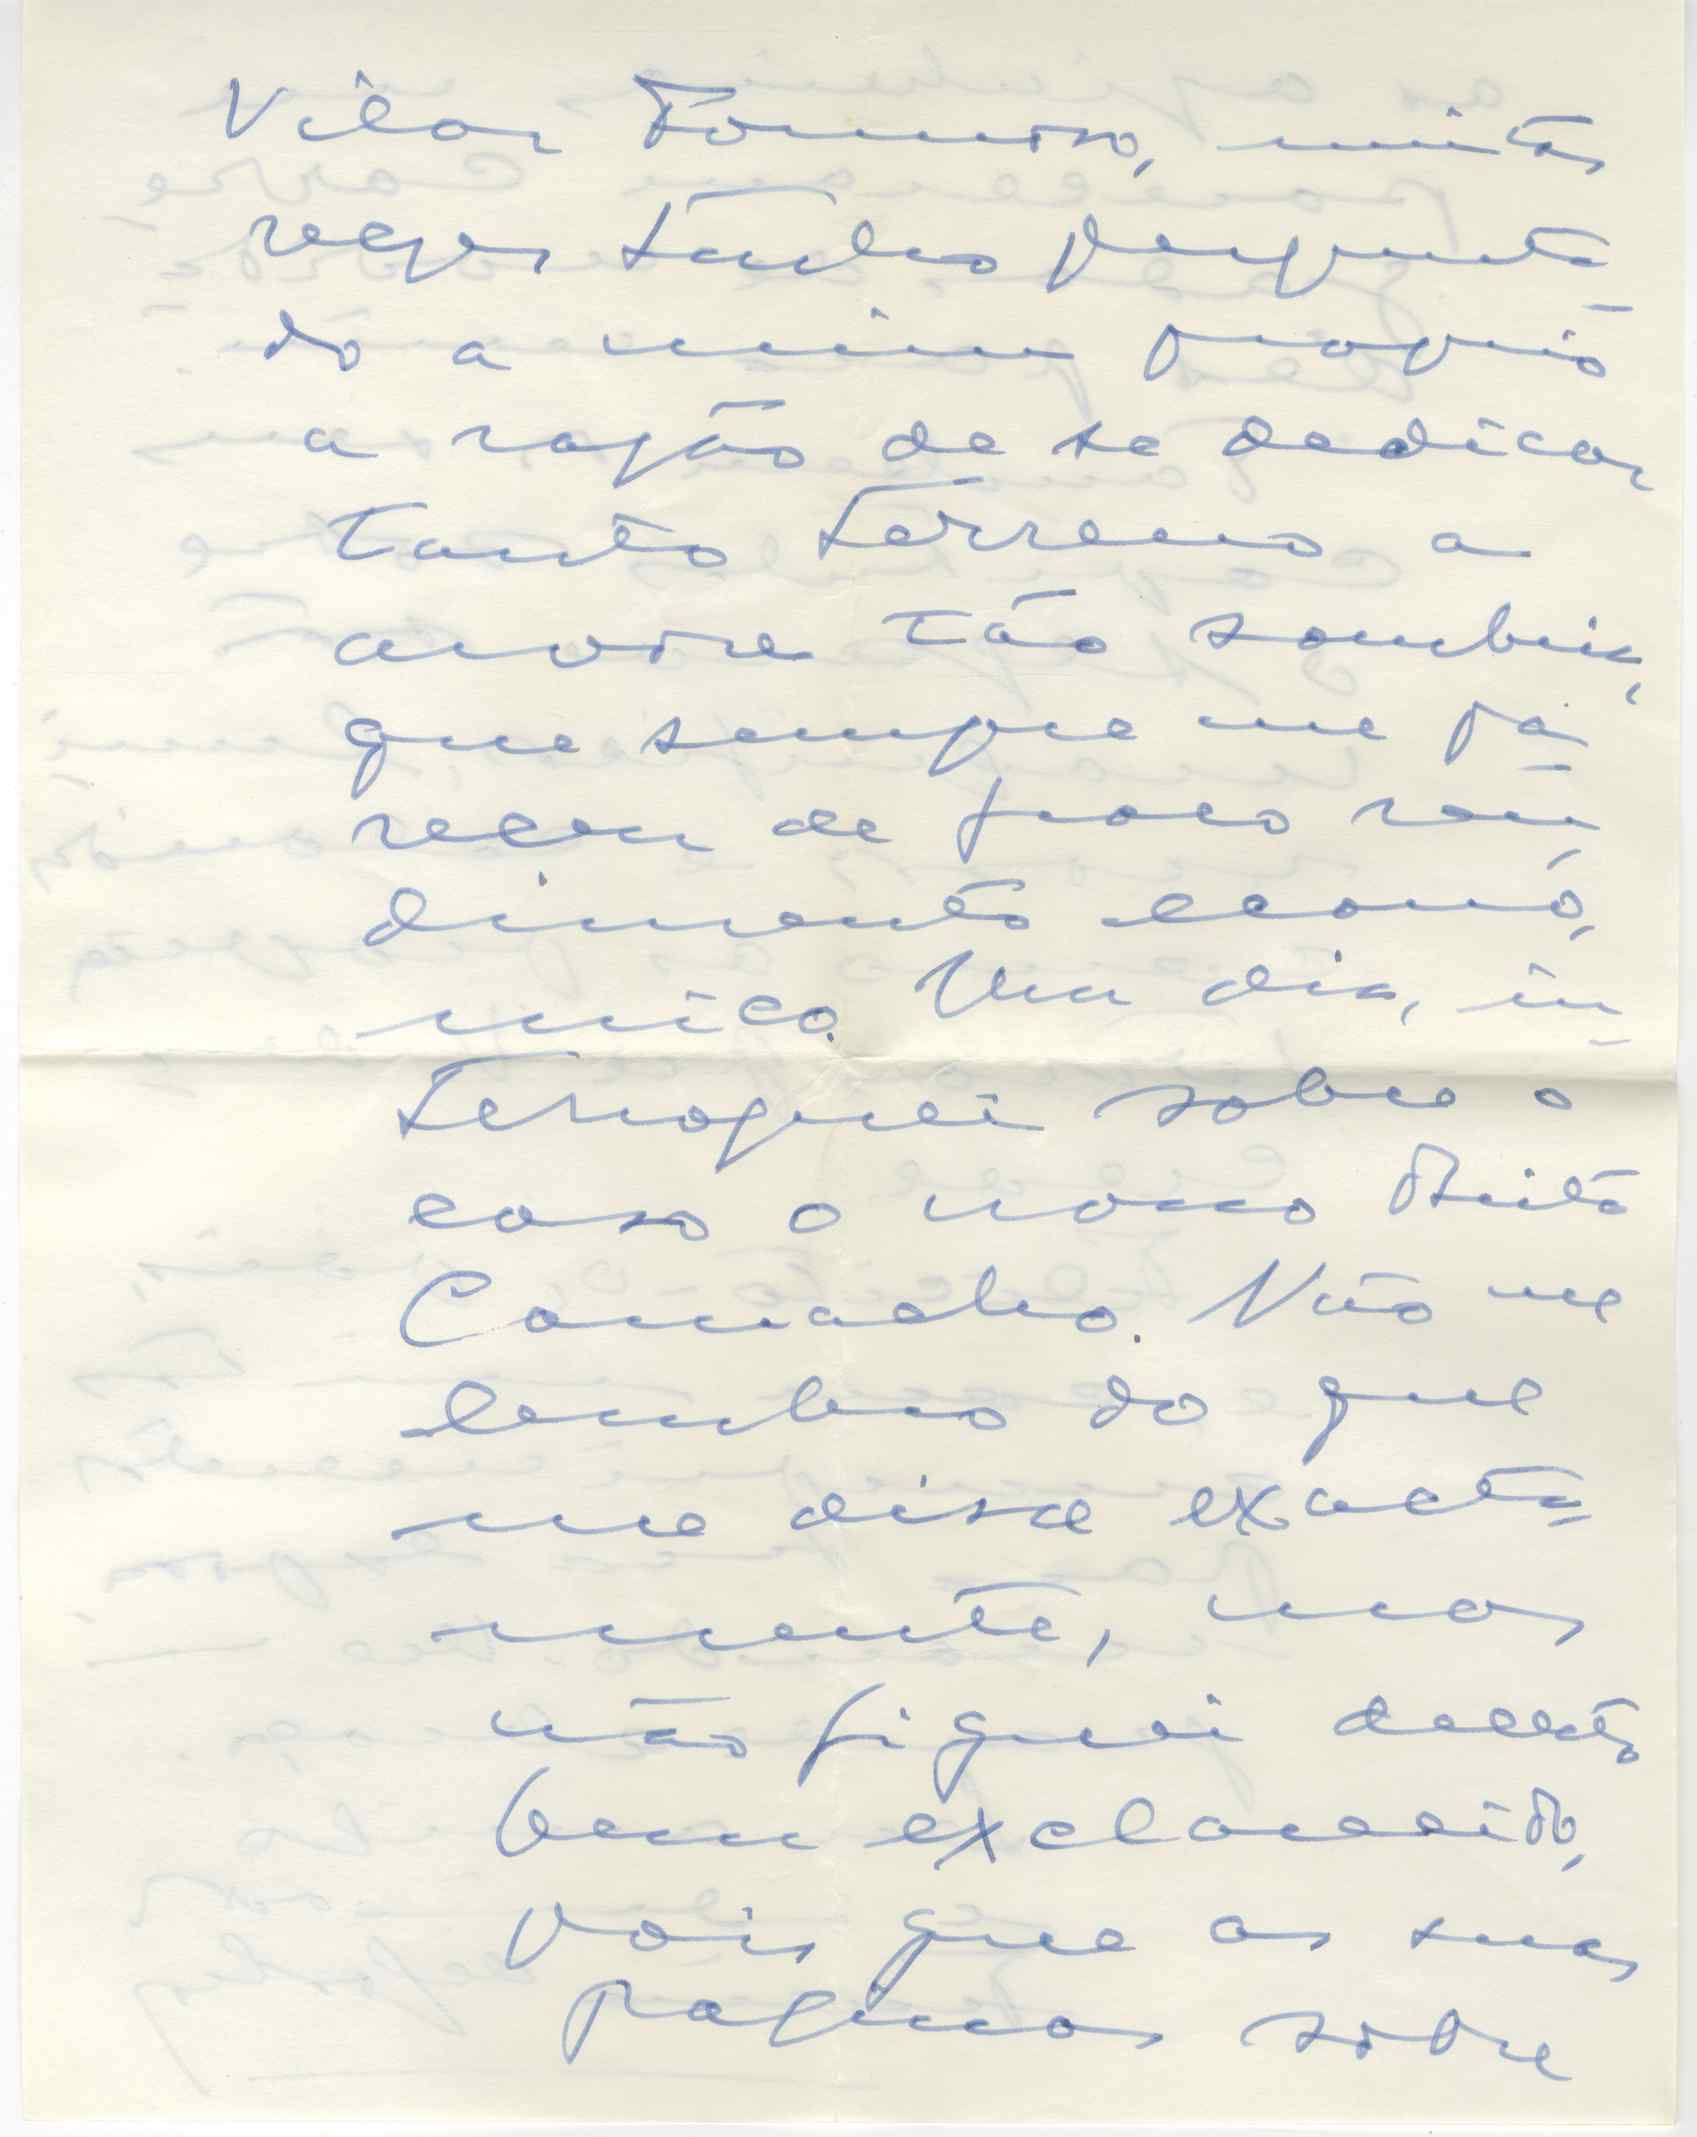 Vilar Formoso, muitas
vezes tenho pergunta_
do a mim proprio
a razão de se dedicar
tanto terreno a
arvore tão sombria,
que sempre me pa_
receu de fraco ren_
dimento econó_
mico. Um dia, in_
terroguei sobre o
caso o nosso Brito
Camacho. Não me
lembro do que
me disse exacta_
mente, mas
não fiquei decerto
bem exclarecido,
pois que as suas
paginas sobre